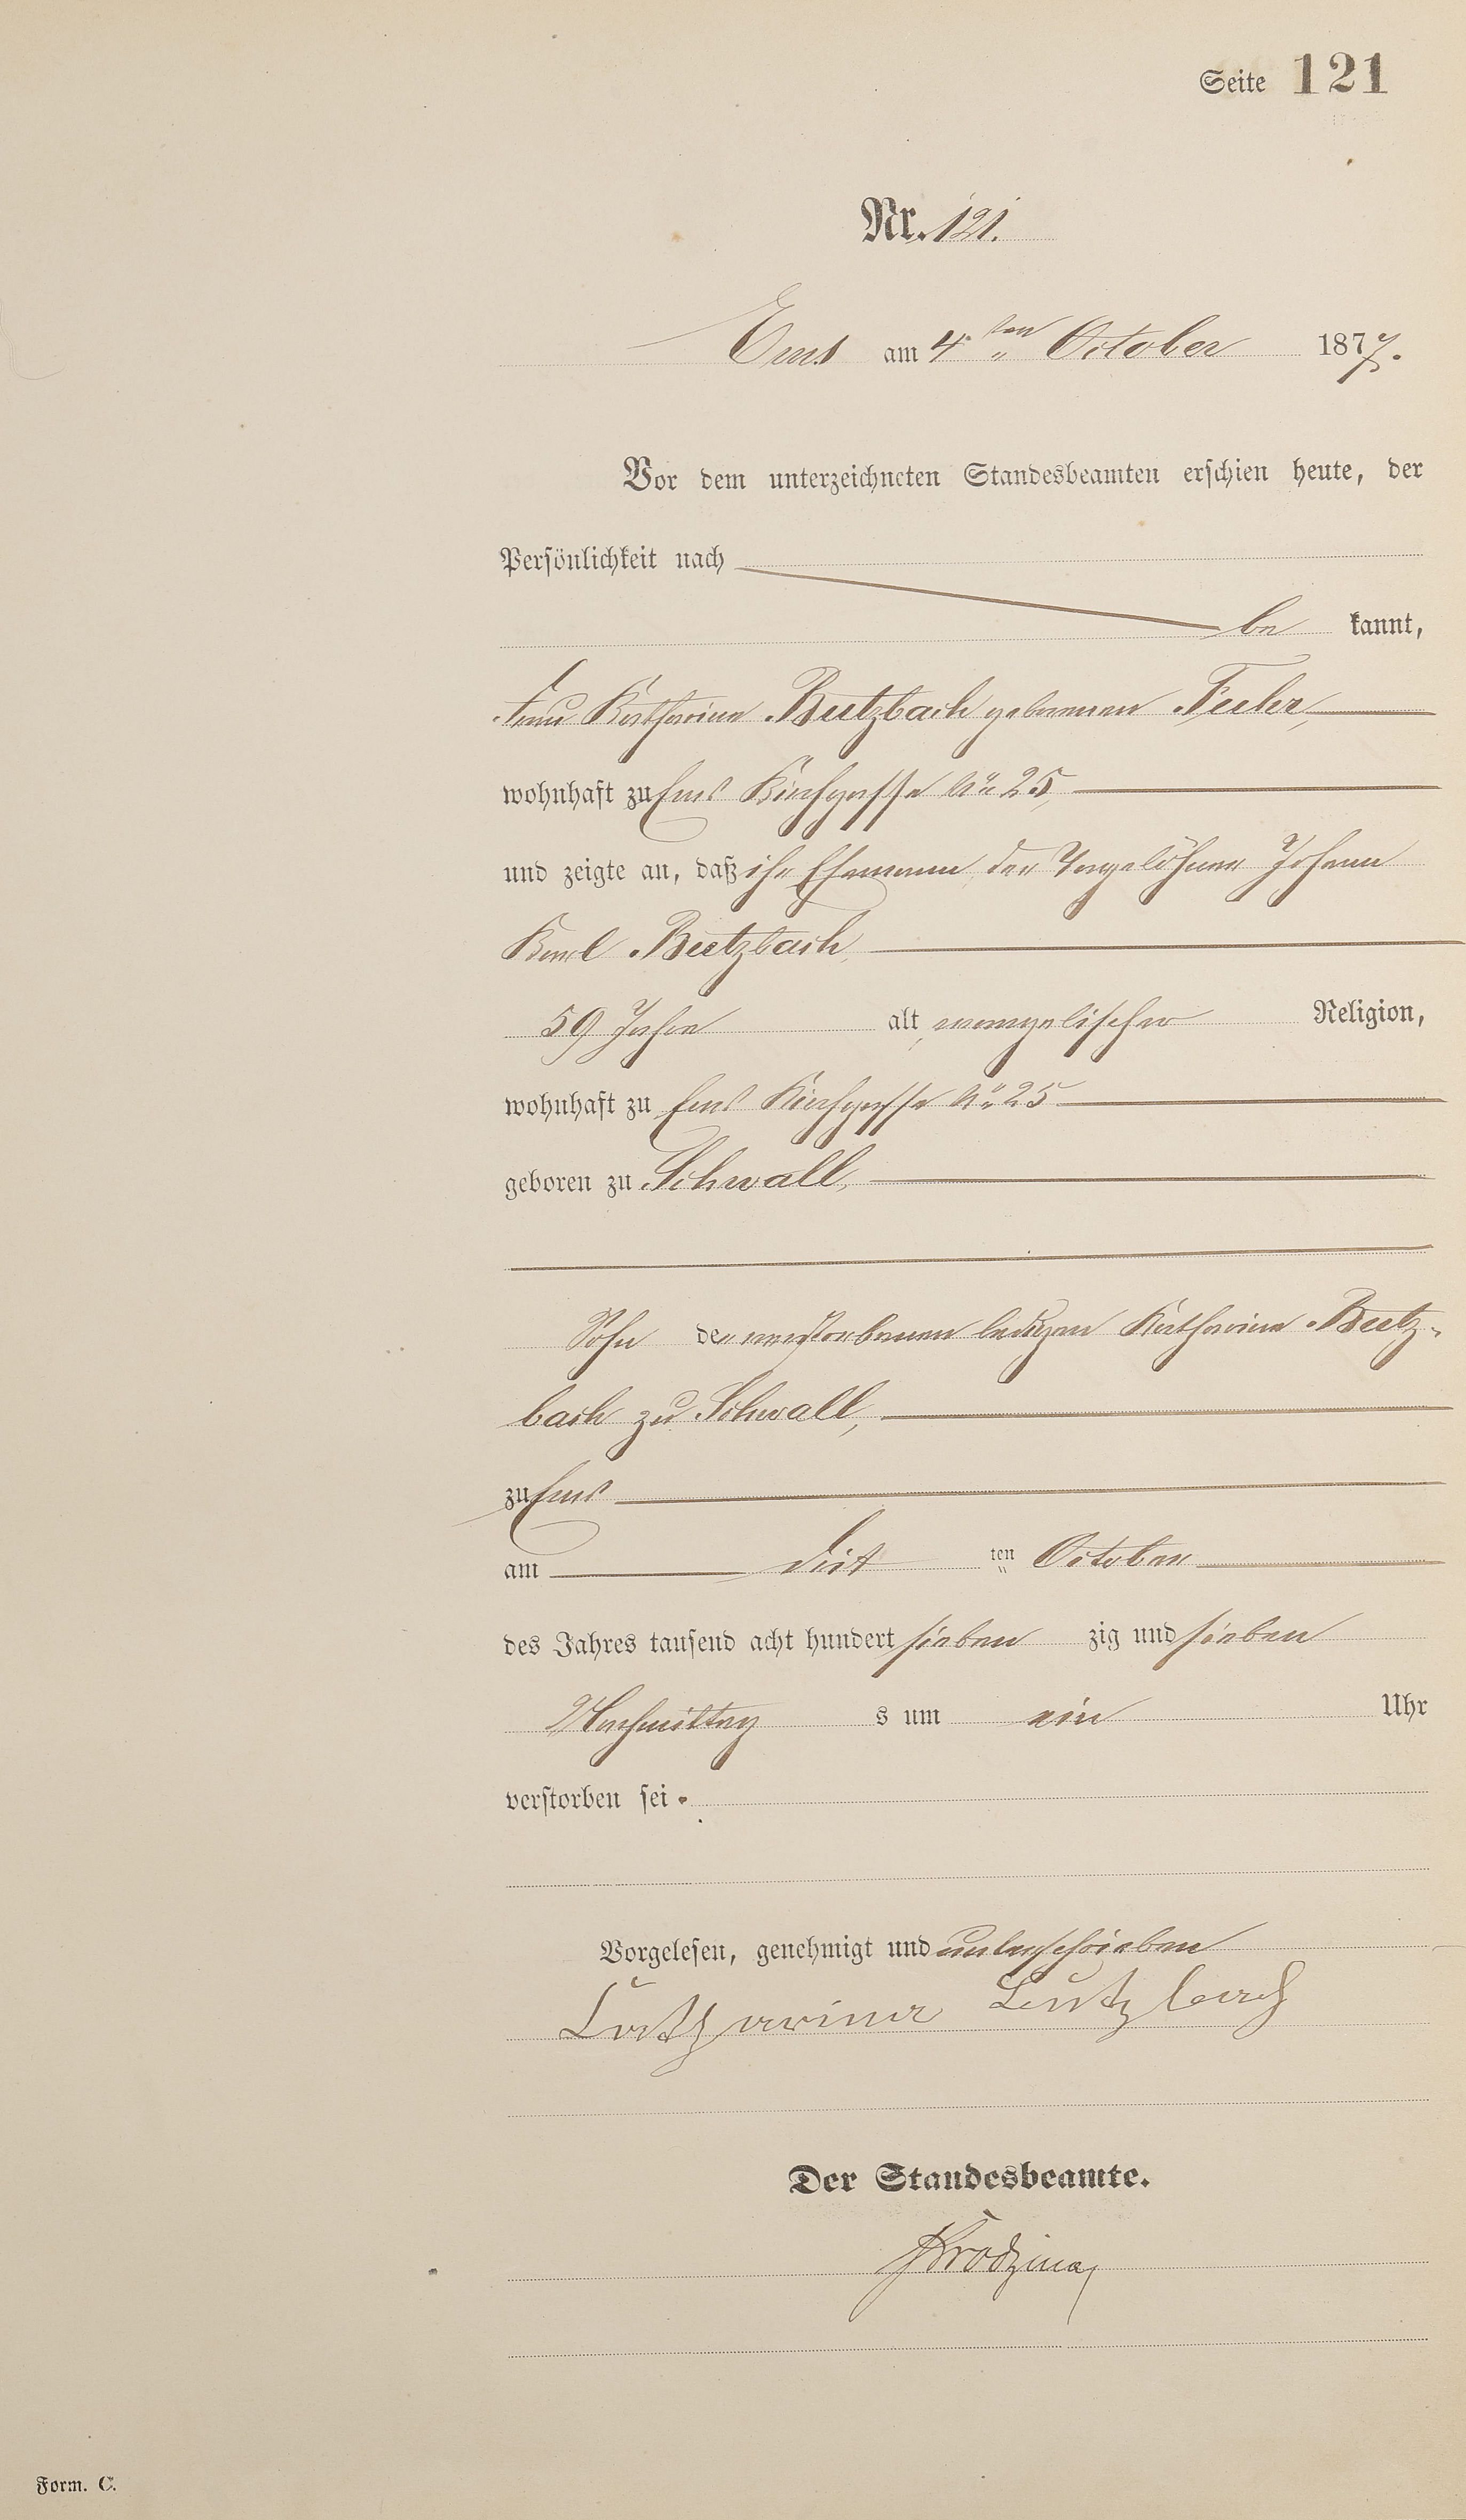 Seite 121
Nr. 121.
Ems am 4ten October 1877.
Vor dem unterzeichneten Standesbeamten erschien heute, der
Persönlichkeit nach
be kannt,
Frau Katharine Butzbach geborenen Feeler,
wohnhaft zu Ems Kirchgasse No 25,
und zeigte an, daß ihr Ehemann, der Tagelöhner Johann
Karl Butzbach,
59 Jahre alt, evangelischer Religion,
wohnhaft zu Ems Kirchgasse No 25
geboren zu Schwall,
Sohn der verstorbenen ledigen Katharine Butz-
bach zu Schwall,
zu Ems
am drit ten October
des Jahres tausend acht hundert sieben zig und sieben
Nachmittag s um ein Uhr
verstorben sei.
Vorgelesen, genehmigt und unterschrieben
Katharina Butzbach
Der Standesbeamte.
Form. C.